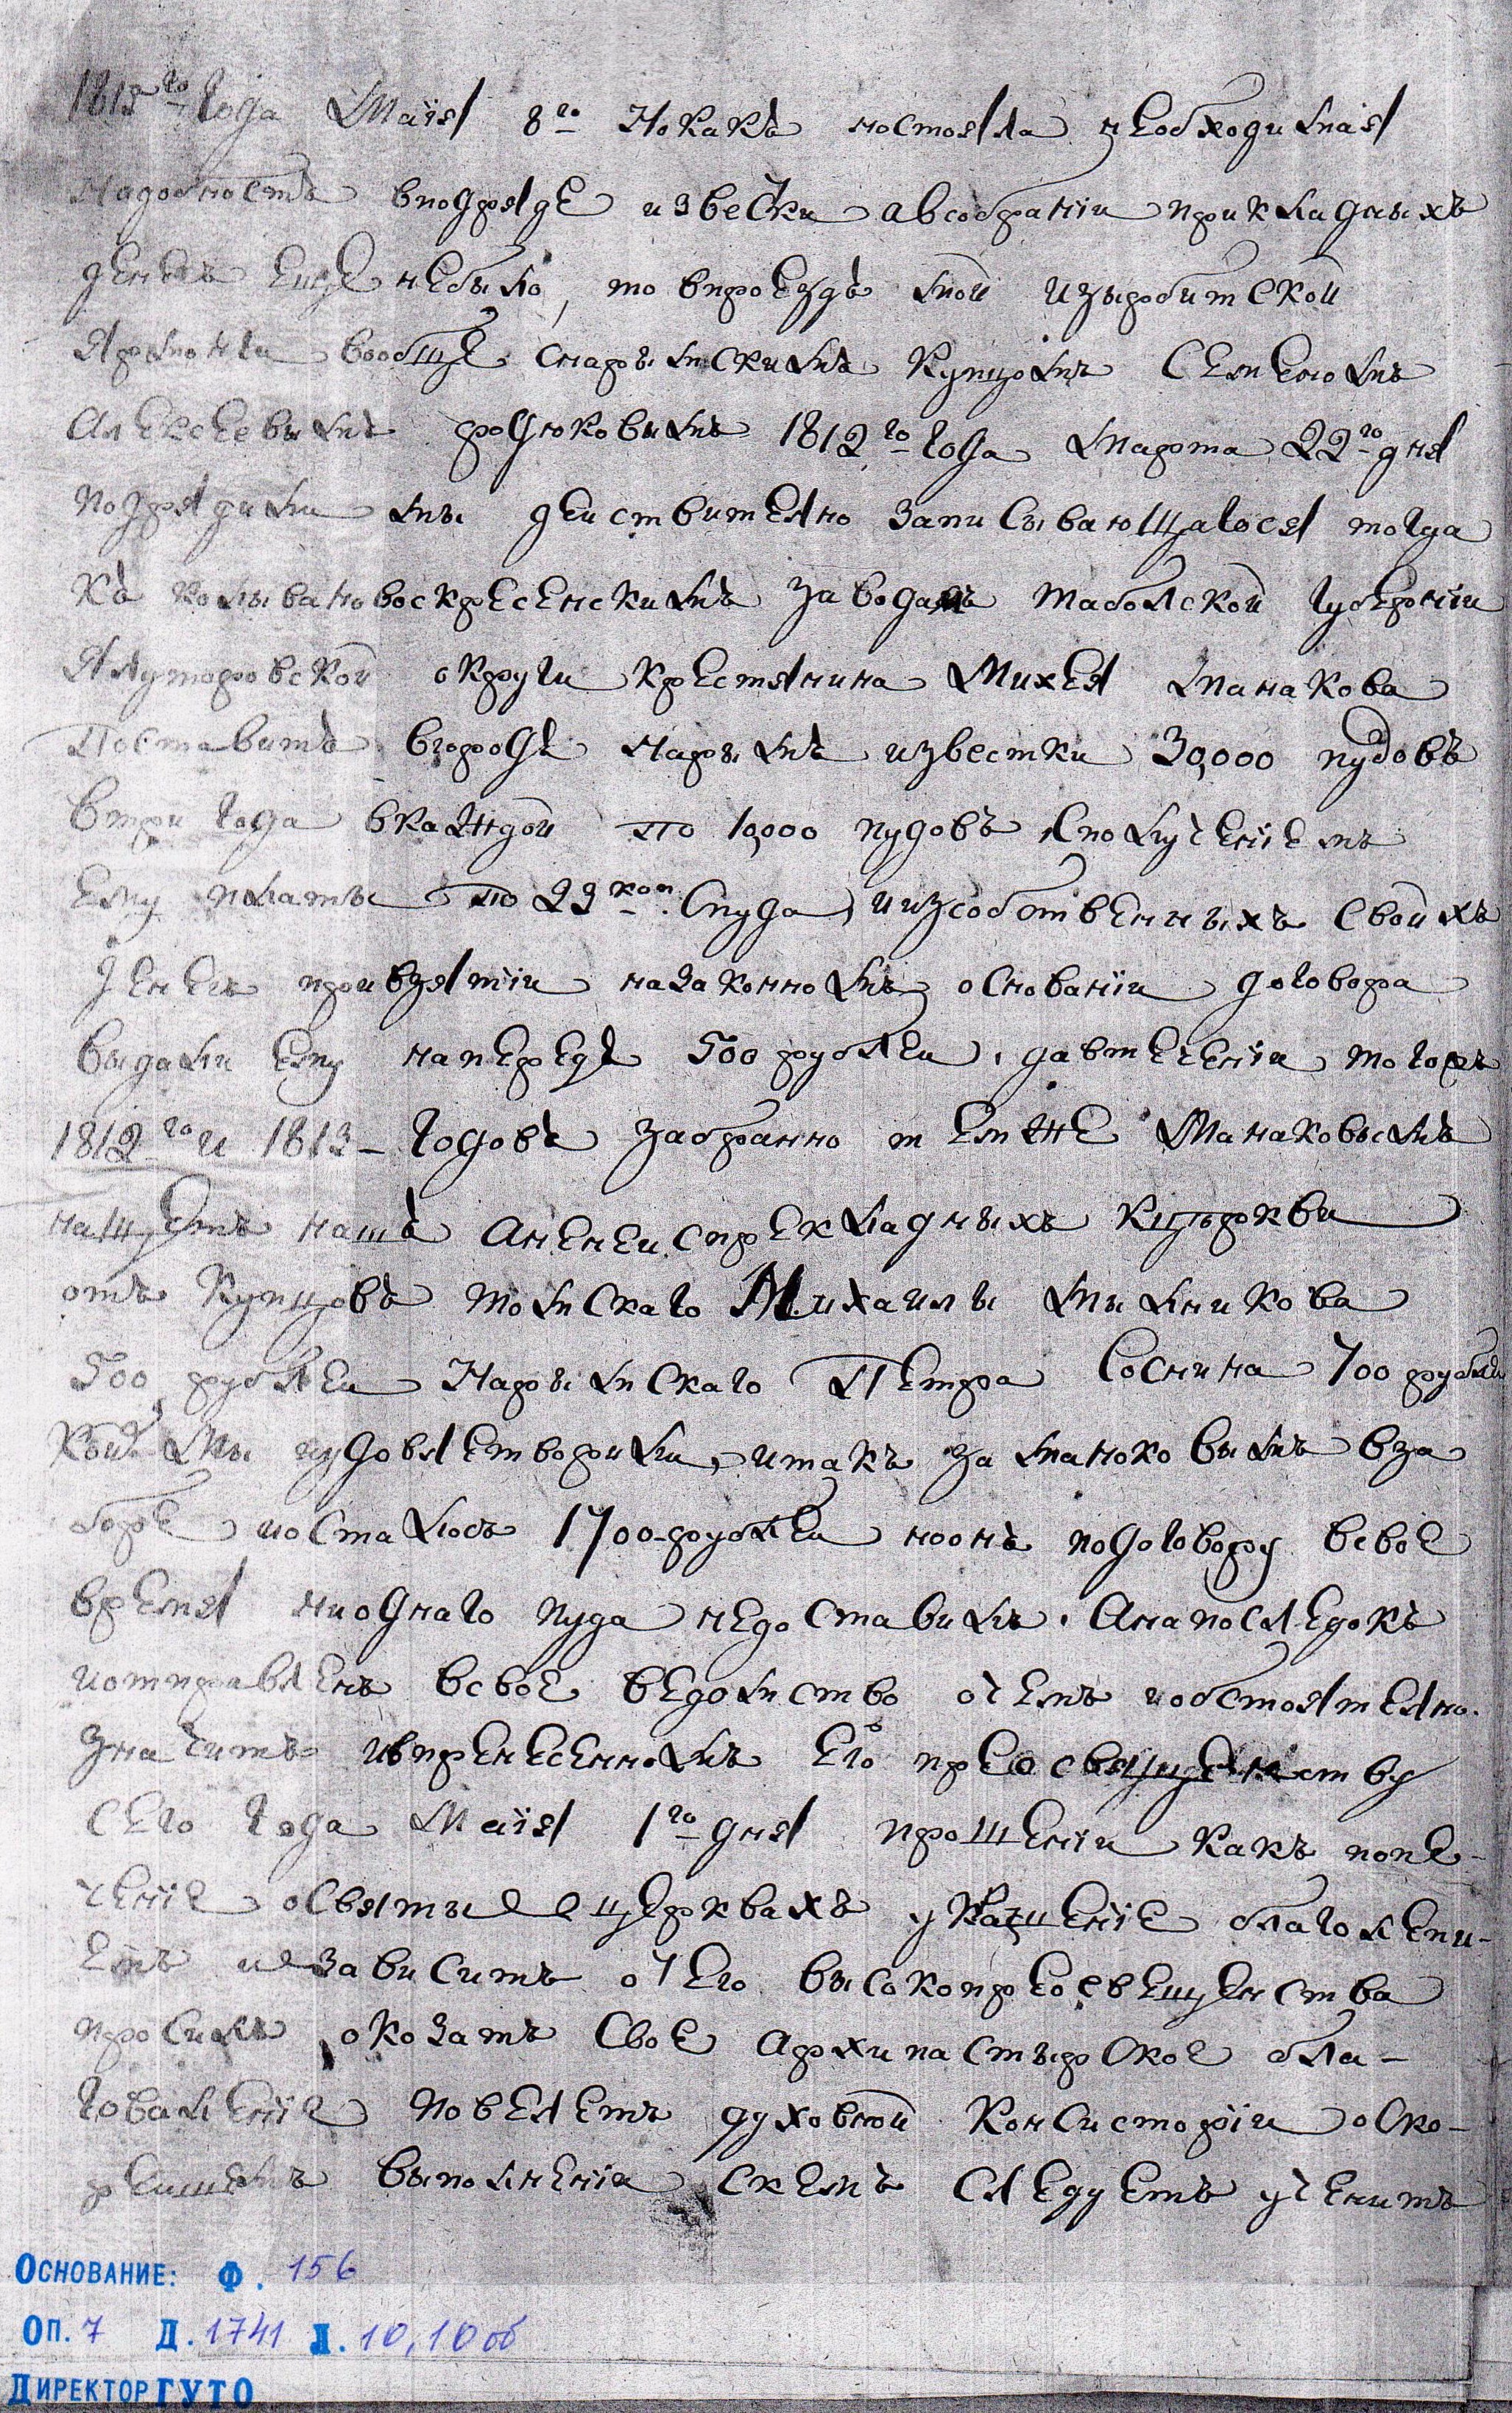 1815<sup>го</sup> года Маія 8<sup>го</sup> Но какъ настояла необходимая
Надобность вподряде извески а всобраніи прикладныхъ
денехъ еще небыло, то впроездъ мой изырбитской
Ярмонки вообще снарымскимъ Купцомъ Семеномъ
Алексеевымъ родюковымъ 1812<sup>го</sup> года марта 22<sup>го</sup> дня
подрядили мы действително записывающагося тогда
къ колывановоскресенскимъ заводамъ таболской губерніи
Ялуторовской округи крестянина Михея Манакова
Поставить вгородъ Нарымъ известки 30,000 пудовъ
втри года вкаждой По 10,000 пудовъ Сполученіемъ
ему платы По 23 коп. Спуда, и изсобственныхъ своихъ
денегъ привзятіи назаконномъ основаніи договора
выдали ему напередъ 500 рублеи, да втеченіи того же
1812<sup>го</sup> и 1813 – годовъ забранно темже Манаковымъ
нащетъ нашъ аненеи спрекладныхъ Кцеркви
отъ Купцовъ томскаго Михаилы мылникова
500 рублеи Нарымскаго Петра Соснина 700 рублеи
Кои мы иудовлетворили, итакъ за манаковымъ вза
боре иосталось 1700 – рублеи ноонъ подоговору всвое
время ниоднаго пуда недоставилъ. Анапоследокъ
иотправленъ всвое ведомство очемъ иобстоятелно.
значитъ ивпренесенномъ Его преосвященству
сего года Маія 1<sup>го</sup> дня прошеніи какъ попе-
ченіе освятые церквахъ украшеніе благолепи-
емъ изависитъ от Его высокопреосвещенства
просимъ оказать Свое Архипастырское бла-
говаленіе повелеть духовной Консисторіи оско-
реишемъ выполненіи скемъ следуетъ учинить
Основание: Ф. 156
Оп. 7 Д. 1741 Л. 10, 10 об
Директор ГУТО